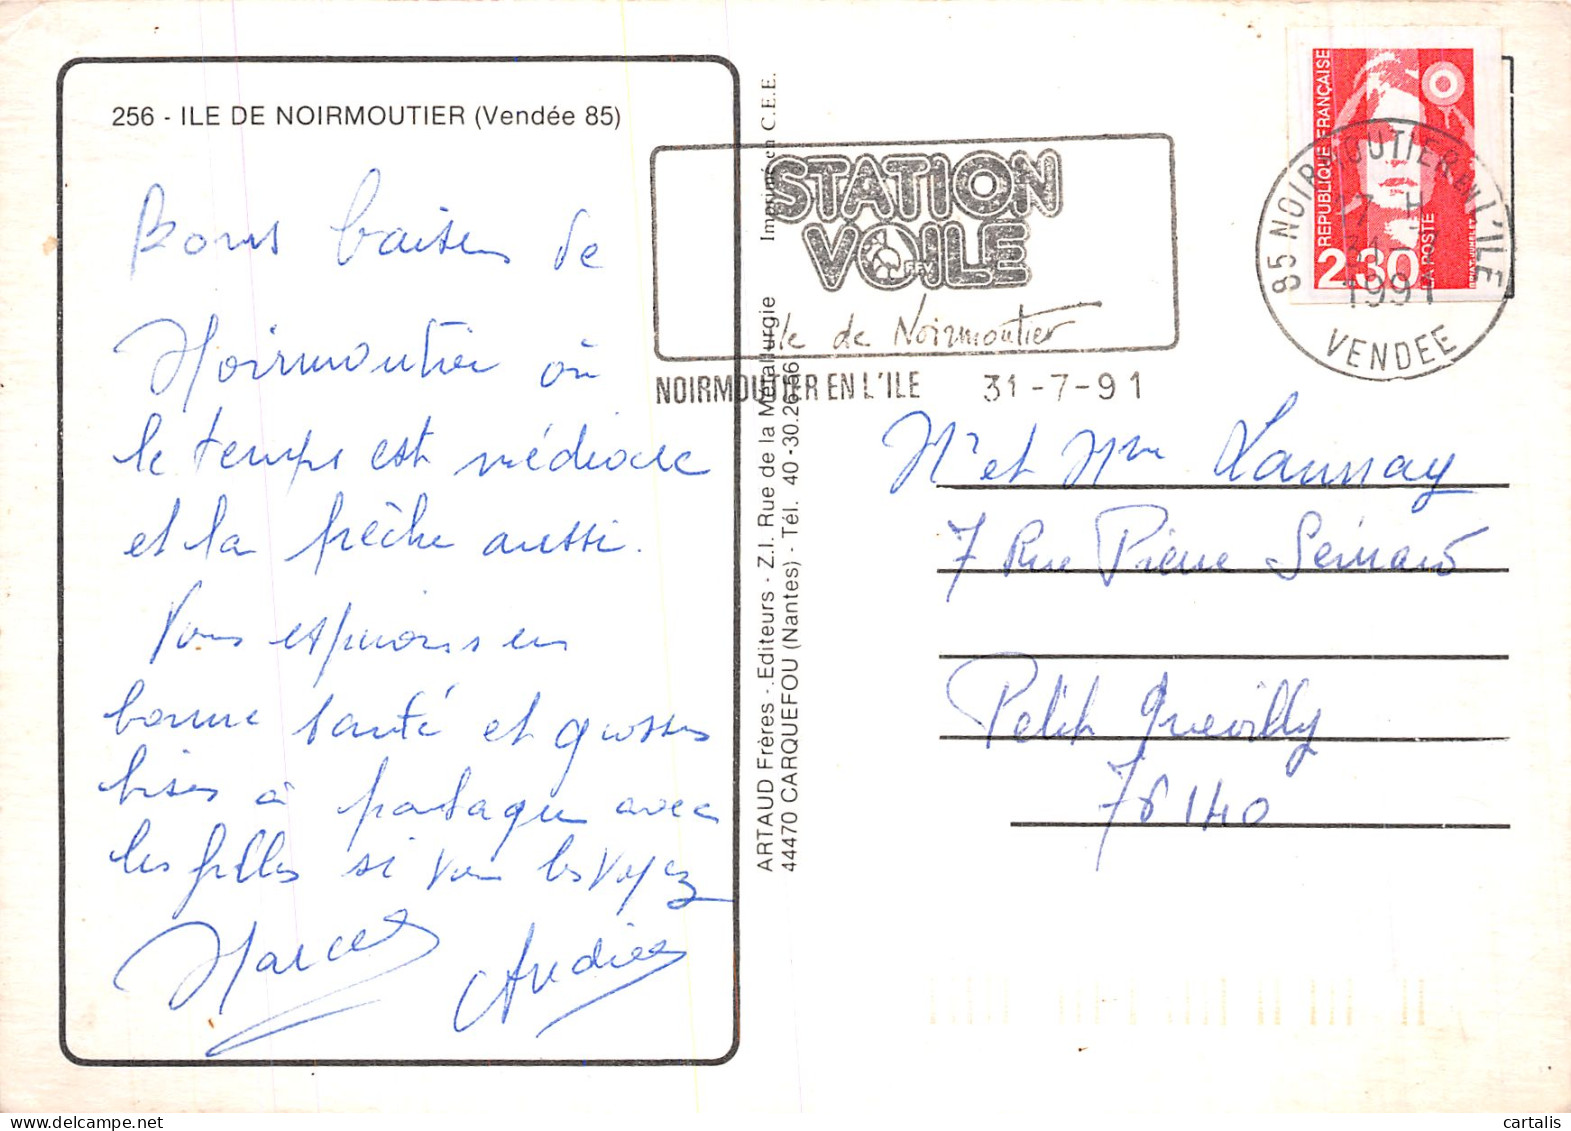 256 - ILE DE NOIRMOUTIER (Vendée 85)
Bons baisers de
Noirmoutier où
le temps est médiocre
et la pêche aussi.
Vous espérons en
bonne santé et grosses
bises à partager avec
les filles si vous les voyez
Marcel Andrée
ARTAUD Frères - Editeurs - Z.I. Rue de la Métallurgie Imprimé en C.E.E.
44470 CARQUEFOU (Nantes) - Tél. 40-30.26.56
STATION
VOILE
FFV
Ile de Noirmoutier
NOIRMOUTIER EN L'ILE 31-7-91
REPUBLIQUE FRANÇAISE
2,30
LA POSTE
85 NOIRMOUTIER EN L'ILE
17 H
31-7
1991
VENDEE
Mr et Mme Launay
7 Rue Pierre Sémard
Petit Quevilly
76140
cartalis